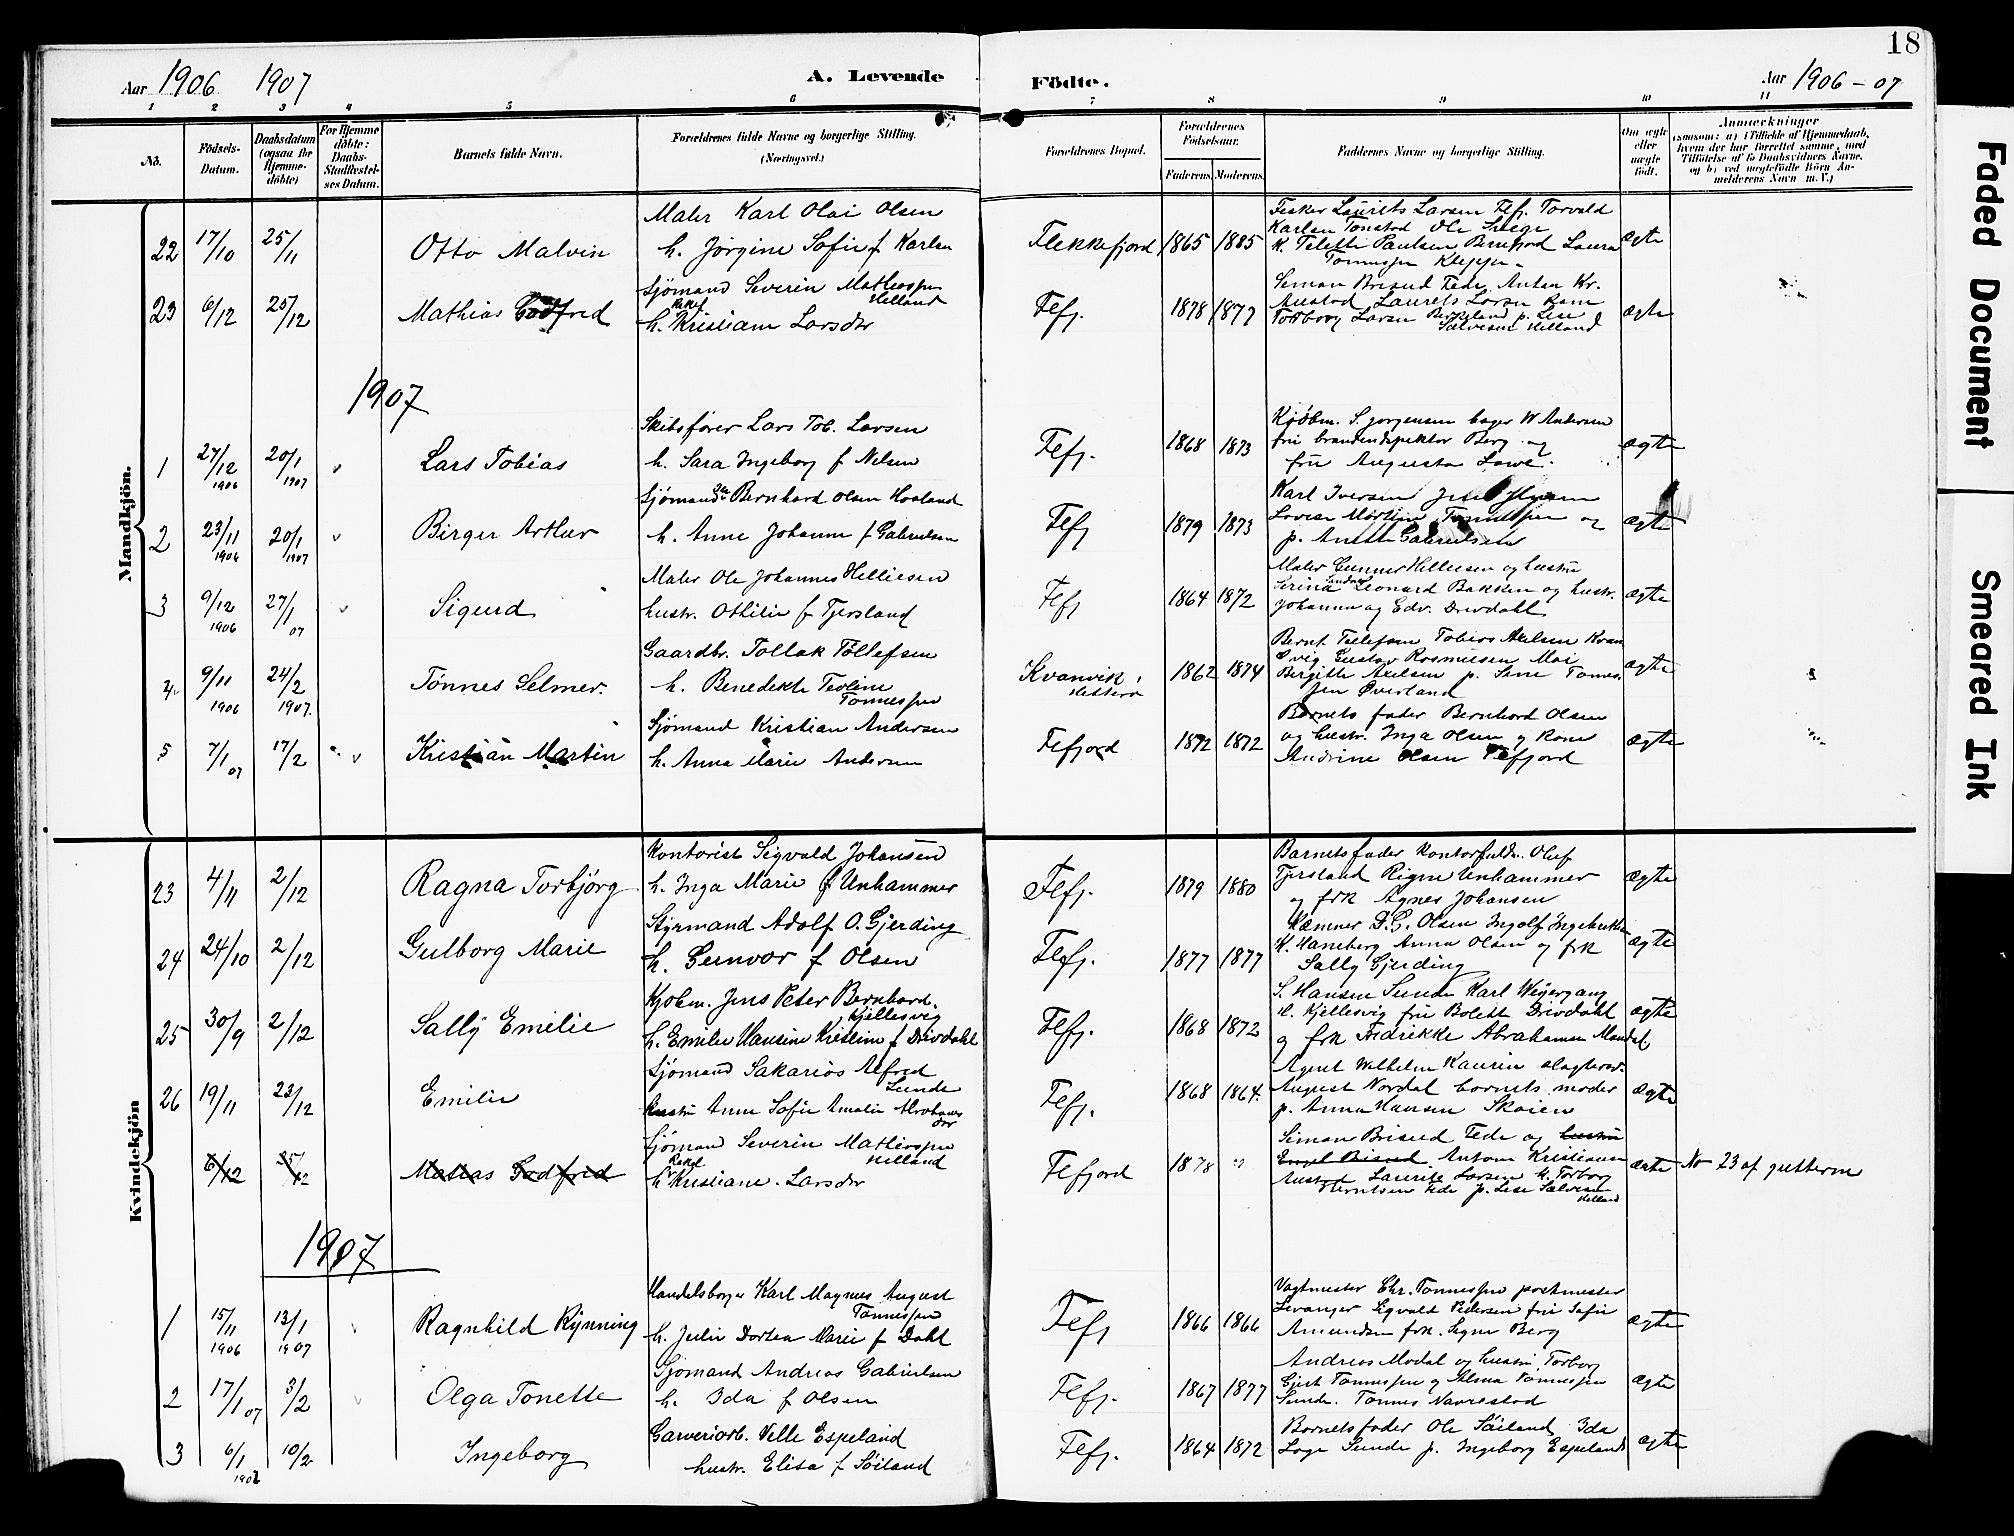 18
Aar 1906 1907
A. Levende
Födte.
Aar 1906-07
1 2 3 4 5 6 7 8 9 10 11
No.
Födsels-Datum.
Daabsdatum (ogsaa for Hjemmedöbte)
For Hjemmedöbte: Daabs-Stadfæstelses Datum.
Barnets fulde Navn.
Forældrenes fulde Navne og borgerlige Stilling. (Næringsvei.)
Forældrenes Bopæl.
Forældrenes Födselsaar.
Faderens. Moderens.
Faddernes Navne og borgerlige Stilling.
Om ægte eller uægte födt.
Anmærkninger
(saasom: a) i Tilfælde af Hjemmedaab, hvem der har forrettet samme, med Tilföielse af to Daabsvidners Navne, og b) ved uægtefödte Börn Anmelderens Navn m. V.)
Mandkjön.
22 17/10 25/11 Otto Malvin
Maler Karl Olai Olsen
h. Jörgine Sofie f Karlsen
Flekkefjord 1865 1885
Fisker Laurits Larsen Flfj. Torvald
Karlsen Tonstad Ole
K. Telette Paulsen Laura
ægte
23 6/12 25/12 Mathias Godfred
Sjömand Severin Mathiesen
Helland
h. Rakel Kristiane Larsdtr
Flfj. 1878 1877
Simon Fede Anton Kr.
Austad Laurits Larsen kone
Torborg Larsen p. Lise
Salvesen Helland
ægte
1907
1 27/12 1906 20/1 1907 Lars Tobias
Skibsförer Lars Tob. Larsen
h. Sara Ingeborg f Nilsen
Flfj. 1868 1873
Kjöbm. S. Jörgensen bager W Andersen
fru brandinspektör Berg og
fru Augusta Lowe.
ægte
2 23/11 1906 20/1 1907 Birger Arthur
Sjömand Bernhard Olsen Hoaland
h. Anne Johanne f Gabrielsen
Flfj 1879 1873
Karl Iversen
Lovise Martine Tönnessen og
p. Gabrielsen
ægte
3 9/12 1906 27/1 07 Sigurd
Maler Ole Johannes Helliesen
hustr. Othilie f Tjersland
Flfj 1864 1872
Maler Gunner Helliesen og hustru
Serina Leonard Bakken og hustr.
Johanna og Edv. Drivdahl
ægte
4 9/11 1906 24/2 1907. Tönnes Selmer.
Gaardbr. Tollak Tollefsen
h. Benedikte Teoline
Tönnessen
Kvanvik, 1862 1874
Bernt Tellefsen Tobias Axelsen Kvan
vig Gustav Rasmussen Moi
Bergitte Axelsen p. Sine Tönnes
sen Överland
ægte
5 7/1 07 17/2 Kristian Martin
Sjömand Kristian Andersen
h. Anna Marie Andersen
Flfjord 1872 1872
Barnets fader Bernhard Olsen
og hustr. Inga Olsen og kone
Andrine Olsen Flfjord
ægte
Kvindekjön
23 4/11 2/12 Ragna Torbjörg
Kontorist Sigvald Johansen
h. Inga Marie f Unhammer
Flfj. 1879 1880
Barnets fader Kontorfuldm. Oluf
Tjersland Signe Unhammer
og frk Agnes Johansen
ægte
24 24/10 2/12 Gulborg Marie
Styrmand Adolf O. Gjerding
h. Gunvor f Olsen
Flfj. 1877 1877
Kæmner D. G. Olsen Ingolf Ingebretsen
K. Haneberg Anna Olsen og frk
Sally Gjerding
ægte
25 30/9 2/12 Sally Emilie
Kjöbm. Jens Peter Bernhard.
Kjellesvig
h. Emilie Hansine Kristine f Drivdahl
Flfj. 1868 1872
S. Hansen Sunde Karl Weyergang
H. Kjellesvig fru Bolett Drivdahl
og frk Fredrikke Abrahamsen Mandal
ægte
26 19/11 23/12 Emilie
Sjömand Sakarias Alfred
Sunde
hustru Anne Sofie Amalie Abrahams
dtr
Flfj. 1868 1864.
Agent Wilhelm Kaurin slagter
August Nordal barnets moder
p. Anna Hansen Skoien
ægte
6/12 25/12 Matias Godfred
Sjömand Severin Mathiessen
Helland
h Rakel Kristiane Larsdtr
Flfjord 1878 "
Simon Fede og hustru
Antone Kristiansen
Austad Laurits Larsen K. Torborg
Berntsen Fede p. Lise Salvesen
Helland
ægte No 23 af gutterne
1907
1 15/11 1906 13/1 1907 Ragnhild Rynning
Handelsborger Karl Magnus August
Tönnessen
h. Julie Dortea Marie f Dahl
Flfj 1866 1866
Vagtmester Chr. Tönnessen postmester
Levanger Sigvald Pedersen fru Sofie
Amundsen frk. Signe Berg
ægte
2 17/1 07 3/2 Olga Tonette
Sjömand Andreas Gabrielsen
h. Ida f Olsen
Flfj. 1867 1877
Andreas Modal og hustru Torborg
Gjert Tönnessen og Alma Tönnessen
Sunde. Tönnes Navrestad
ægte
3 6/1 1907 10/2 Ingeborg
Garveriarb. Velle Espeland
hustr. Elisa f Söiland
Flfj. 1864 1872
Barnets fader Ole Söiland Ida
Loge Sunde p. Ingeborg Espeland
ægte
Faded Document
Smeared Ink